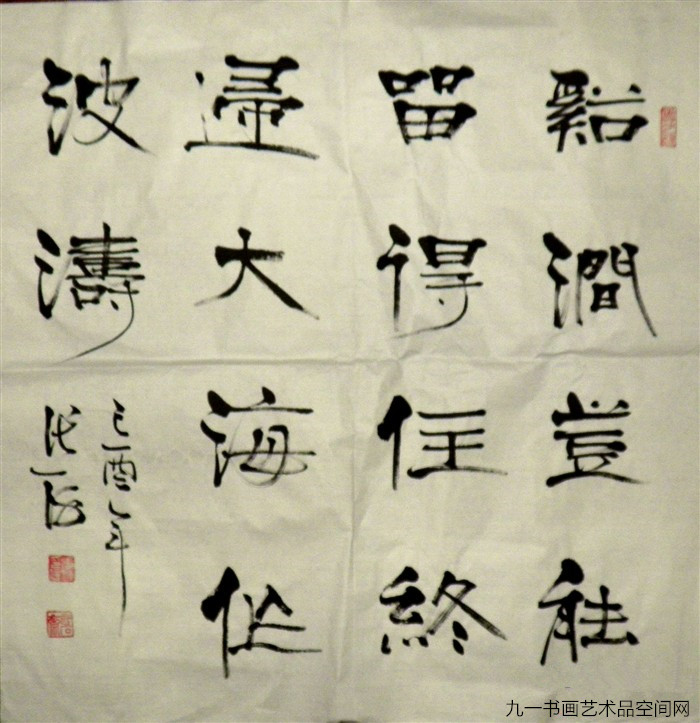 谿澗豈能
留得住終
歸大海作
波濤
酉年
九一书画艺术品空间网